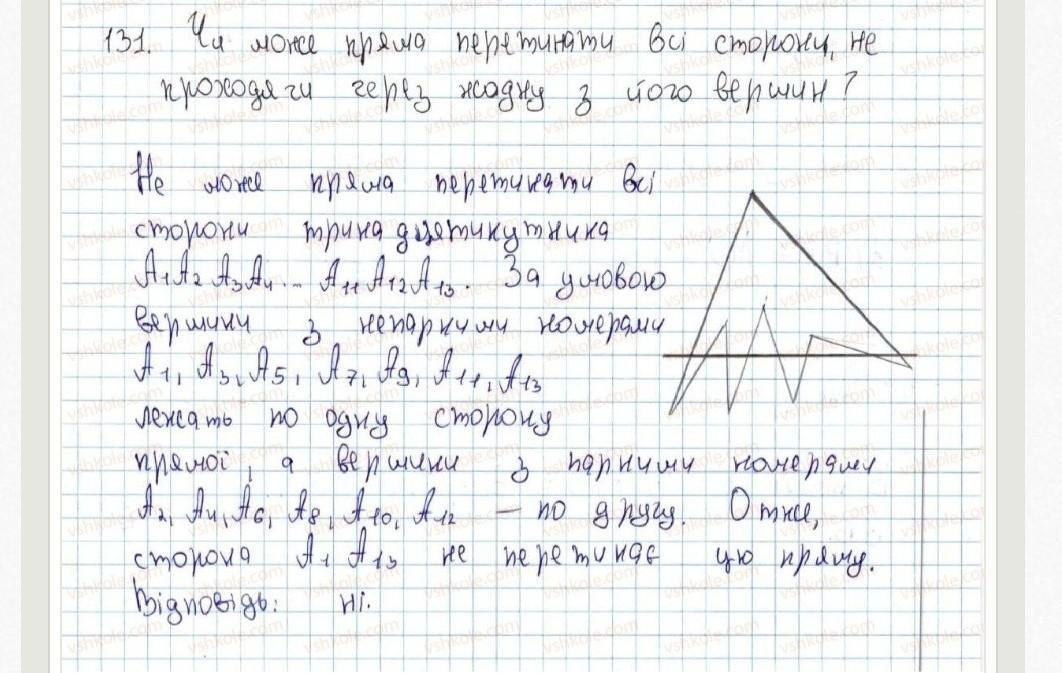 131. Чи може пряма перетинати всі сторони, не
проходячи через жодну з його вершин?
Не може пряма перетинати всі
сторони тринадцятикутника
A₁A₂A₃A₄... A₁₁A₁₂A₁₃. За умовою
вершини з непарними номерами
A₁, A₃, A₅, A₇, A₉, A₁₁, A₁₃
лежать по одну сторону
прямої, а вершини з парними номерами
A₂, A₄, A₆, A₈, A₁₀, A₁₂ — по другу. Отже,
сторона A₁A₁₃ не перетинає цю пряму.
Відповідь: ні.